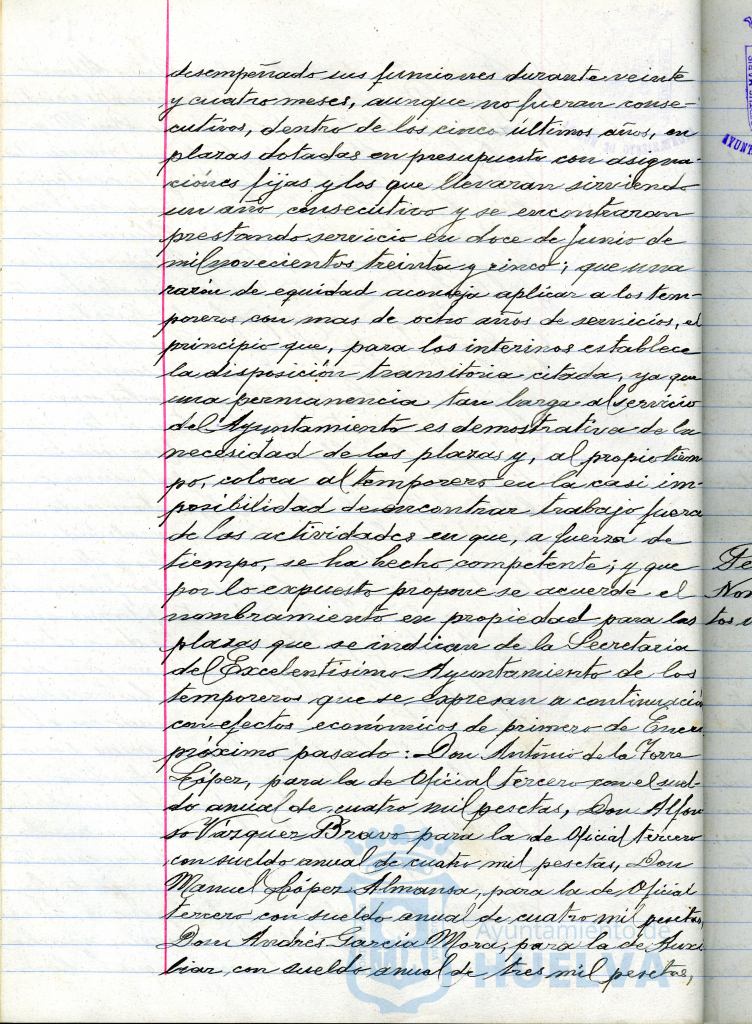 desempeñado sus funciones durante veinte
y cuatro meses, aunque no fueran conse-
cutivos, dentro de los cinco últimos años, en
plazas dotadas en presupuesto con asigna-
ciones fijas y los que llevaran sirviendo
un año consecutivo y se encontraran
prestando servicio en doce de Junio de
mil novecientos treinta y cinco; que una
razón de equidad aconseja aplicar a los tem-
poreros con mas de ocho años de servicios, el
principio que, para los interinos establece
la disposición transitoria citada, ya que
una permanencia tan larga al servicio
del Ayuntamiento es demostrativa de la
necesidad de las plazas y, al propio tiem
po, coloca al temporero en la casi im-
posibilidad de encontrar trabajo fuera
de las actividades en que, a fuerza de
tiempo, se ha hecho competente; y que
por lo expuesto propone se acuerde el
nombramiento en propiedad para las
plazas que se indican de la Secretaria
del Excelentísimo Ayuntamiento de los
temporeros que se expresan a continuación
con efectos económicos de primero de Enero
próximo pasado: Don Antonio de la Torre
López, para la de Oficial tercero con el suel-
do anual de cuatro mil pesetas, Don Alfon
so Vázquez Bravo para la de Oficial tercero
con sueldo anual de cuatro mil pesetas, Don
Manuel López Almansa, para la de Oficial
tercero con sueldo anual de cuatro mil pesetas,
Don Andrés García Mora, para la de Auxi
liar, con sueldo anual de tres mil pesetas,
Ayuntamiento de
HUELVA